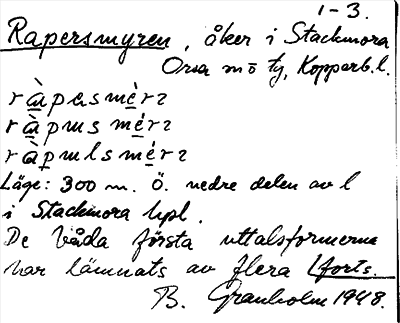 1-3.
Rapersmyren, åker i Stackmora
Orsa mö tg, Kopparb. l.
Läge: 300 m. Ö. nedre delen av l
i Stackmora bpl.
De båda första uttalsformerna
har lämnats av flera (forts.
B. Granholm 1948.